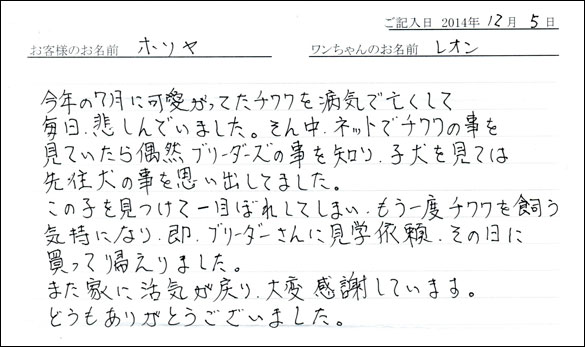 ご記入日 2014年 12月 5日
お客様のお名前 ホリヤ ワンちゃんのお名前 レオン
今年の7月に可愛がってたチワワを病気で亡くして
毎日、悲しんでいました。そん中、ネットでチワワの事を
見ていたら偶然ブリーダーズの事を知り、子犬を見ては
先住犬の事を思い出してました。
この子を見つけて一目ぼれしてしまい、もう一度チワワを飼う
気持になり、即、ブリーダーさんに見学依頼、その日に
買って帰えりました。
また家に活気が戻り、大変感謝しています。
どうもありがとうございました。